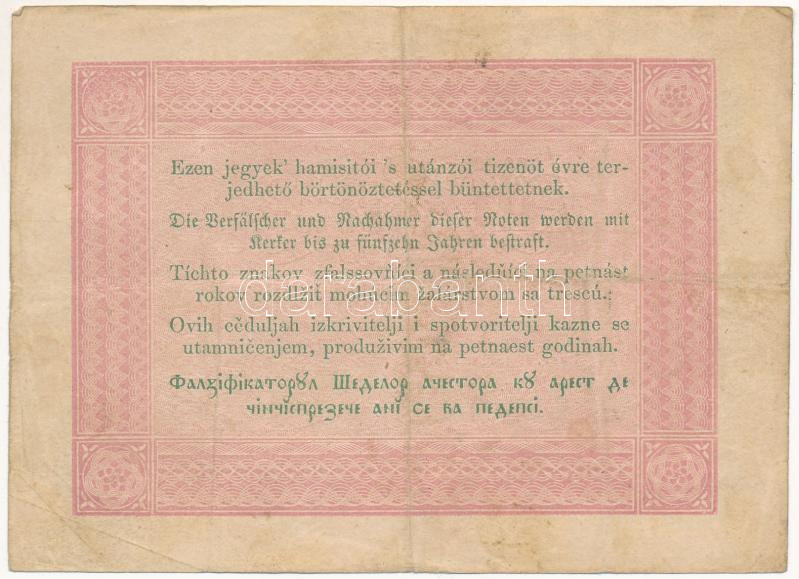 Ezen jegyek' hamisitói 's utánzói tizenöt évre ter-
jedhető börtönöztetéssel büntettetnek.
Die Verfälscher und Nachahmer dieser Noten werden mit
Kerker bis zu fünfzehn Jahren bestraft.
Tíchto znakov zfalssovňíci a následňíci na petnást
rokov rozdlžit mohúcim žalárstvom sa trescú.:
darabanth
Ovih cěduljah izkrivitelji i spotvoritelji kazne se
utamničenjem, produživim na petnaest godinah.
Фалꙁіфікаторꙋл Шеделор ачестора кꙋ арест де
чінчіспреꙁече анї се ва педепсі.